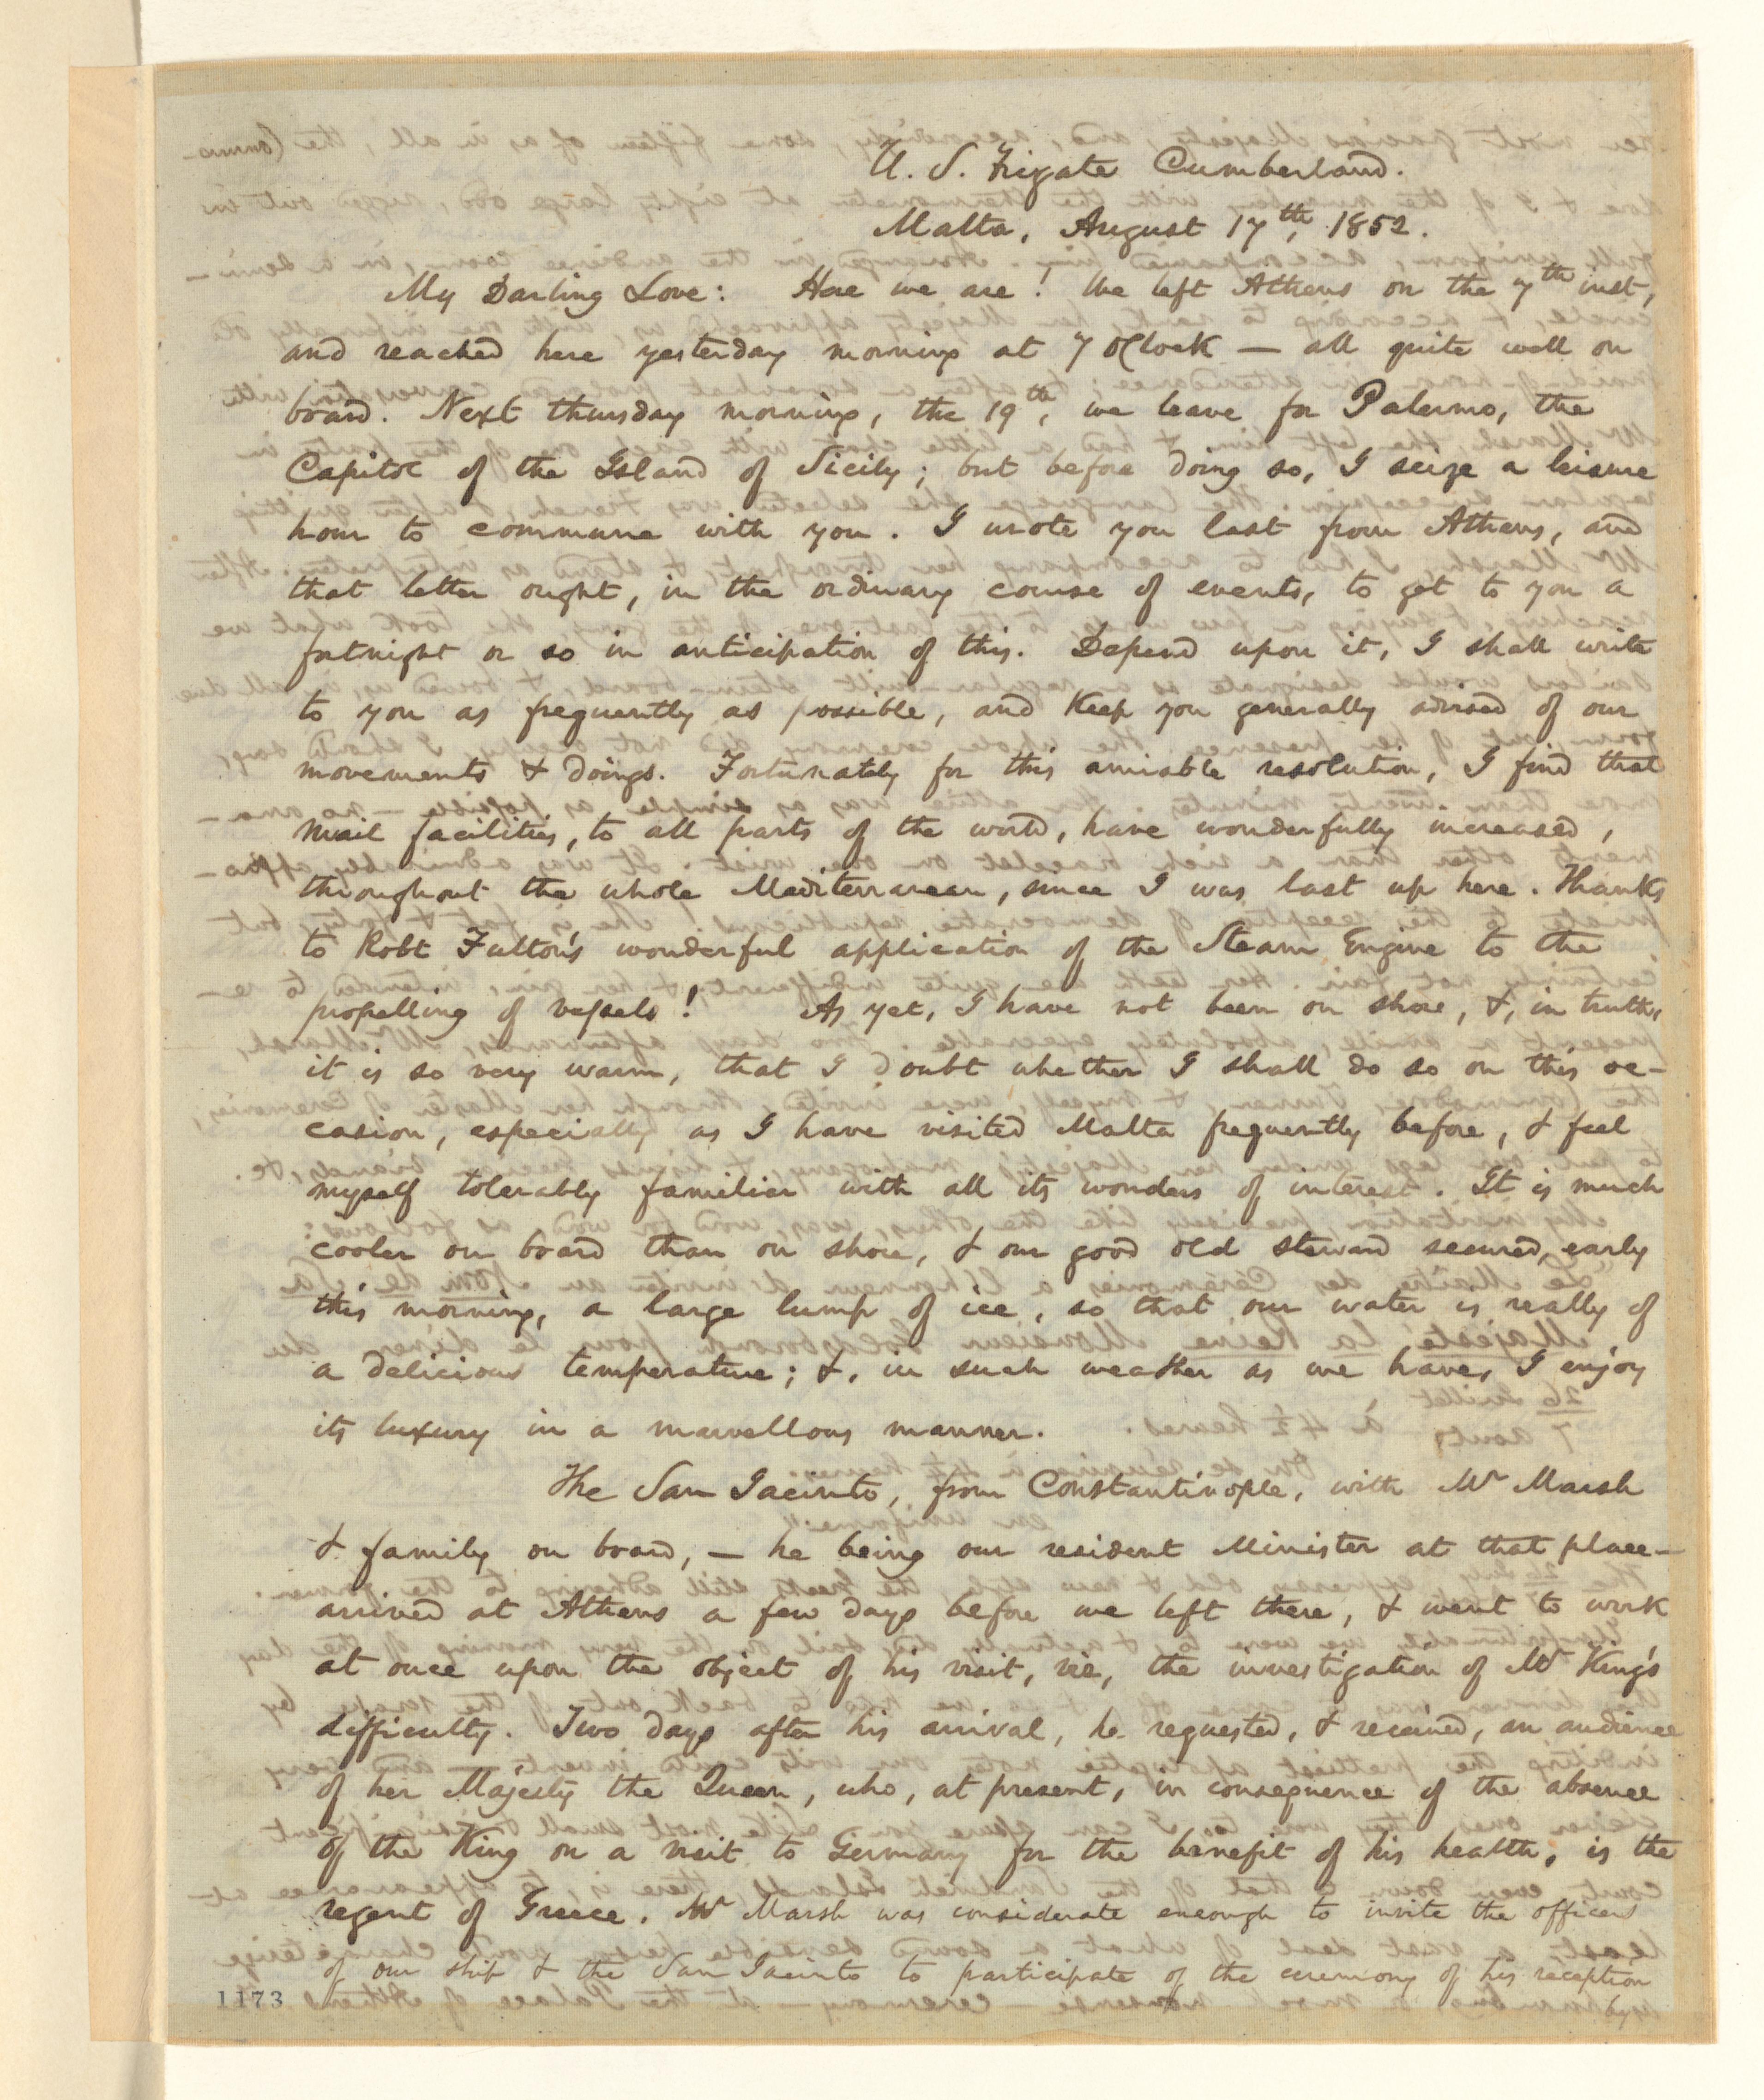 U. S. Frigate Cumberland.
Malta, August 17th, 1852.
My Darling Love: Here we are! We left Athens on the 7th inst,
and reached here yesterday morning at 7 OClock — all quite well on
board. Next thursday morning, the 19th, we leave for Palermo, the
Capitol of the Island of Sicily; but before doing so, I seize a leisure
hour to commune with you. I wrote you last from Athens, and
that letter ought, in the ordinary course of events, to get to you a
fortnight or so in anticipation of this. Depend upon it, I shall write
to you as frequently as possible, and Keep you generally advised of our
movements & doings. Fortunately for this amiable resolution, I find that
mail facilities, to all parts of the world, have wonderfully increased,
throughout the whole Mediterranean, since I was last up here. Thanks
to Robt Fulton's wonderful application of the Steam Engine to the
propelling of vessels! As yet, I have not been on shore, &, in truth,
it is so very warm, that I doubt whether I shall do so on this oc-
casion, especially as I have visited Malta frequently before, & feel
myself tolerably familiar with all its wonders of interest. It is much
cooler on board than on shore, & our good old steward secured, early
this morning, a large lump of ice, so that our water is really of
a delicious temperature; &, in such weather as we have, I enjoy
its luxury in a marvellous manner.
The San Jacinto, from Constantinople, with Mr Marsh
& family on board, — he being our resident Minister at that place —
arrived at Athens a few days before we left there, & went to work
at once upon the object of his visit, viz, the investigation of Mr King's
difficulty. Two days after his arrival, he requested, & received, an audience
of her Majesty the Queen, who, at present, in consequence of the absence
of the King on a visit to Germany for the benefit of his health, is the
regent of Greece. Mr Marsh was considerate enough to invite the officers
of our ship & the San Jacinto to participate of the ceremony of his reception
by
1173